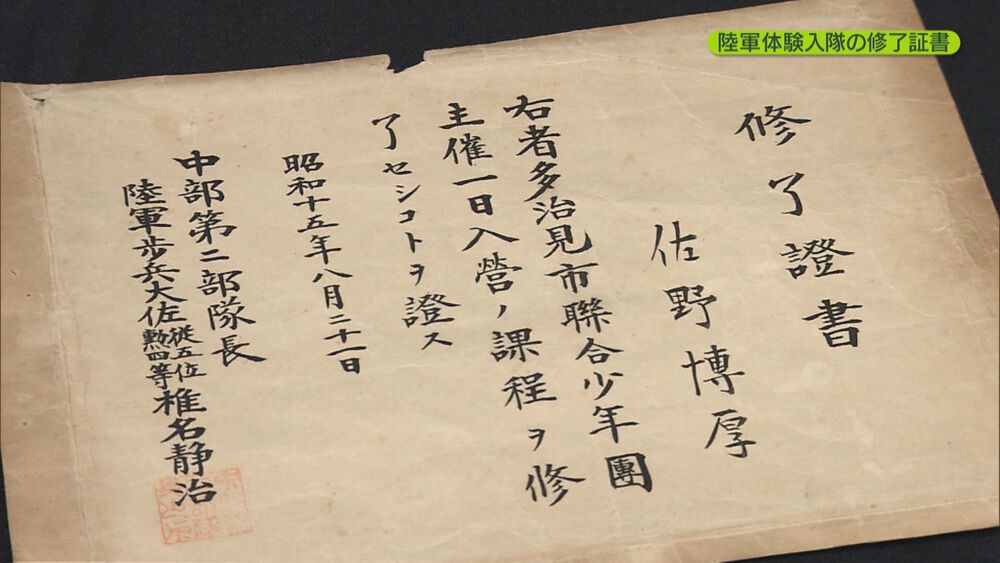 陸軍体験入隊の修了証書
修了證書
佐野博厚
右者多治見市聯合少年團
主催一日入營ノ課程ヲ修
了セシコトヲ證ス
昭和十五年八月二十一日
中部第二部隊長
陸軍步兵大佐従五位勲四等椎名静治